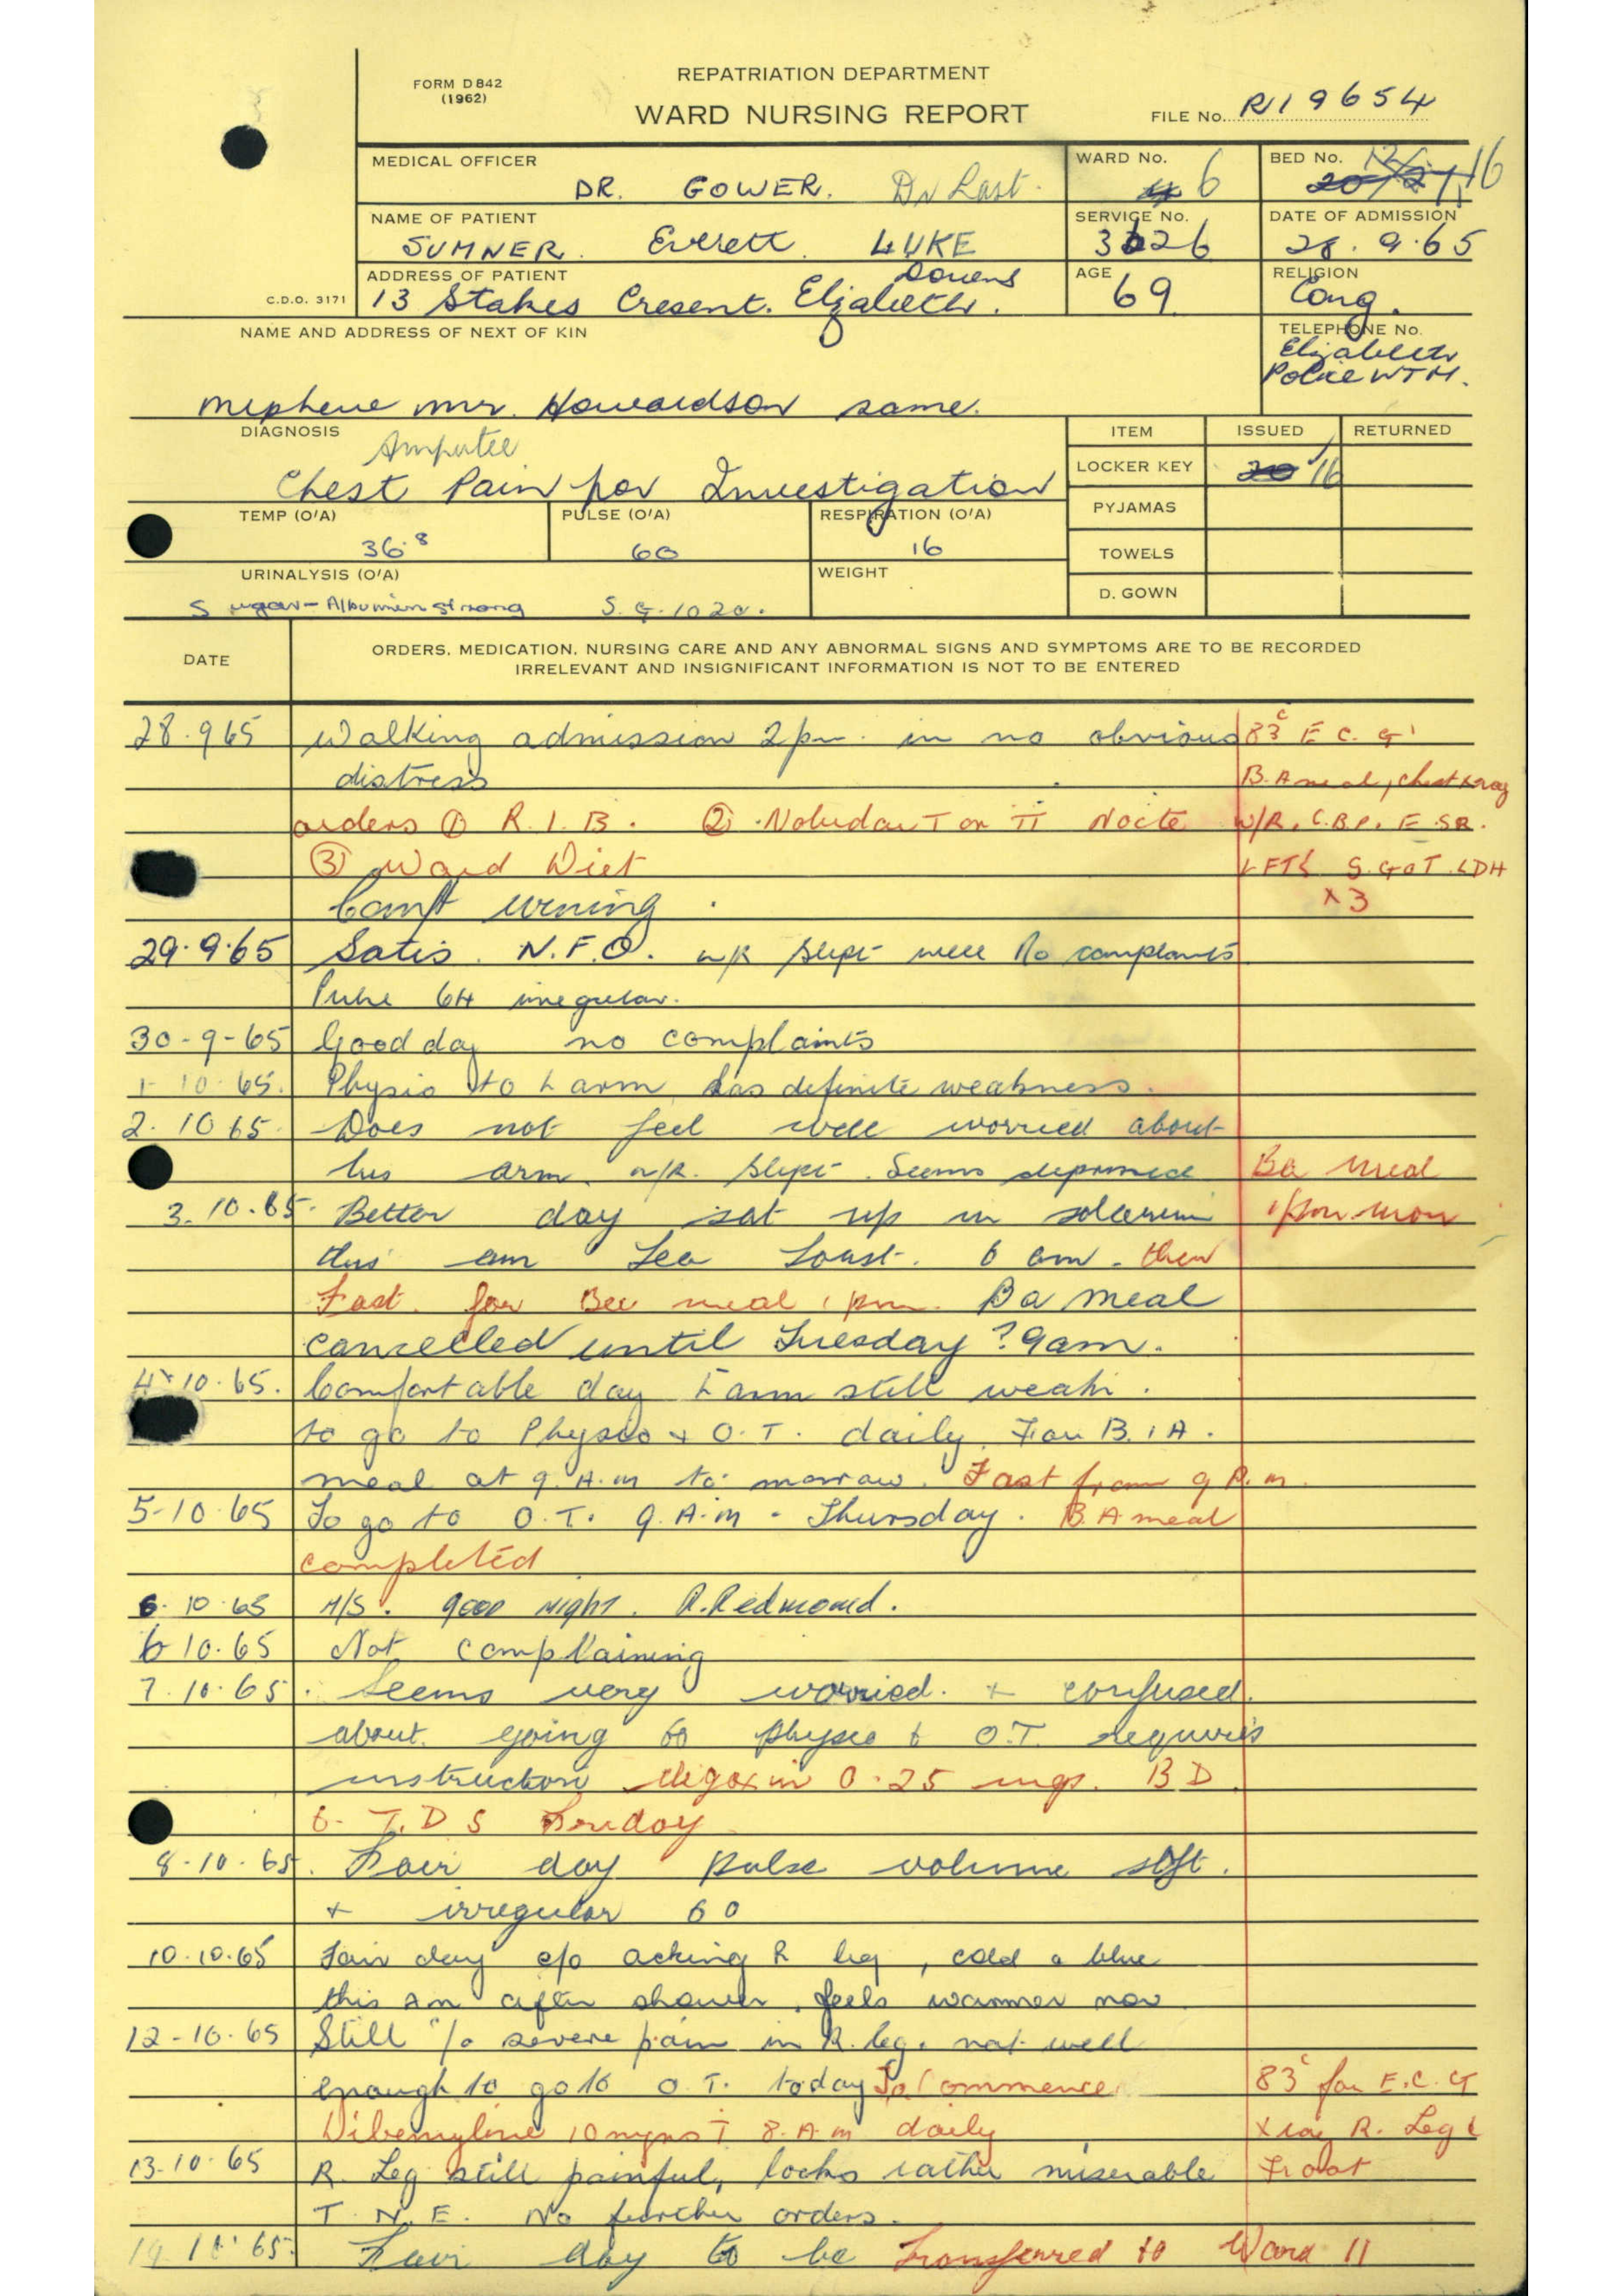 FORM D842
(1962)
REPATRIATION DEPARTMENT
WARD NURSING REPORT
FILE No. R19654
MEDICAL OFFICER
DR. GOWER. Dr Last.
WARD No.
6
BED No.
16
NAME OF PATIENT
SUMNER. Everett LUKE
SERVICE No.
DATE OF ADMISSION
28.9.65
ADDRESS OF PATIENT
13 Stakes Cresent. Elizabeth Downs.
AGE
69
RELIGION
Cong.
C.D.O. 3171
NAME AND ADDRESS OF NEXT OF KIN
TELEPHONE No.
Elizabeth
Police
mr. Howardson same.
DIAGNOSIS
Amputee
Chest Pain for Investigation
ITEM ISSUED RETURNED
LOCKER KEY 20 16
PYJAMAS
TOWELS
D. GOWN
TEMP (O'A)
36.8
PULSE (O'A)
60
RESPIRATION (O'A)
16
URINALYSIS (O'A)
Sugar - Albumin strong S.G. 1020.
WEIGHT
DATE
ORDERS, MEDICATION, NURSING CARE AND ANY ABNORMAL SIGNS AND SYMPTOMS ARE TO BE RECORDED
IRRELEVANT AND INSIGNIFICANT INFORMATION IS NOT TO BE ENTERED
28.9 65 Walking admission 2pm. in no obvious 83 c E.C.G
distress B.A meal, chest xray
orders ① R.I.B. ② Noludar T or TT Nocte W/R, C.B.P. E.SR.
③ Ward Diet LFTs S.GOT LDH
Comft evening. x3
29.9.65 Satis. N.F.O. n/R Slept well No complaints
Pulse 64 irregular.
30-9-65 Good day no complaints
1-10-65. Physio to L arm has definite weakness.
2.10 65. Does not feel well worried about
his arm. n/R. Slept. Seems depressed Ba meal
3.10.65. Better day sat up in solarium 1pm mon
this am Tea Toast. 6 am. then
Fast. for Ba meal 1 pm. Ba meal
cancelled until Tuesday ? 9am.
4.10.65. Comfortable day L arm still weak.
to go to Physio + O.T. daily. For B.A.
meal at 9.A.m to-morrow. Fast from 9 P.m.
5-10-65 To go to O.T. 9.A.m - Thursday. B.A meal
completed
6.10.65 N/S. good night. R.Redmond.
6 10.65 Not complaining
7.10.65. Seems very worried. + confused.
about going to physio & O.T. requires
instruction digoxin 0.25 mgs. B D.
T.D S
8.10.65. Fair day pulse volume soft.
+ irregular 60
10.10.65 Fair day c/o aching R leg, cold & blue
this am after shower, feels warmer now
12-10-65 Still c/o severe pain in R. leg. not well
enough to go to O.T. today To Commence 83 c for E.C.G
Dibenyline 10mgms T 8.A.m daily xray R. Leg &
13.10.65 R. Leg still painful, looks rather miserable Foot
T.N.E. No further orders.
14 10 65. Fair day to be Transferred to Ward 11